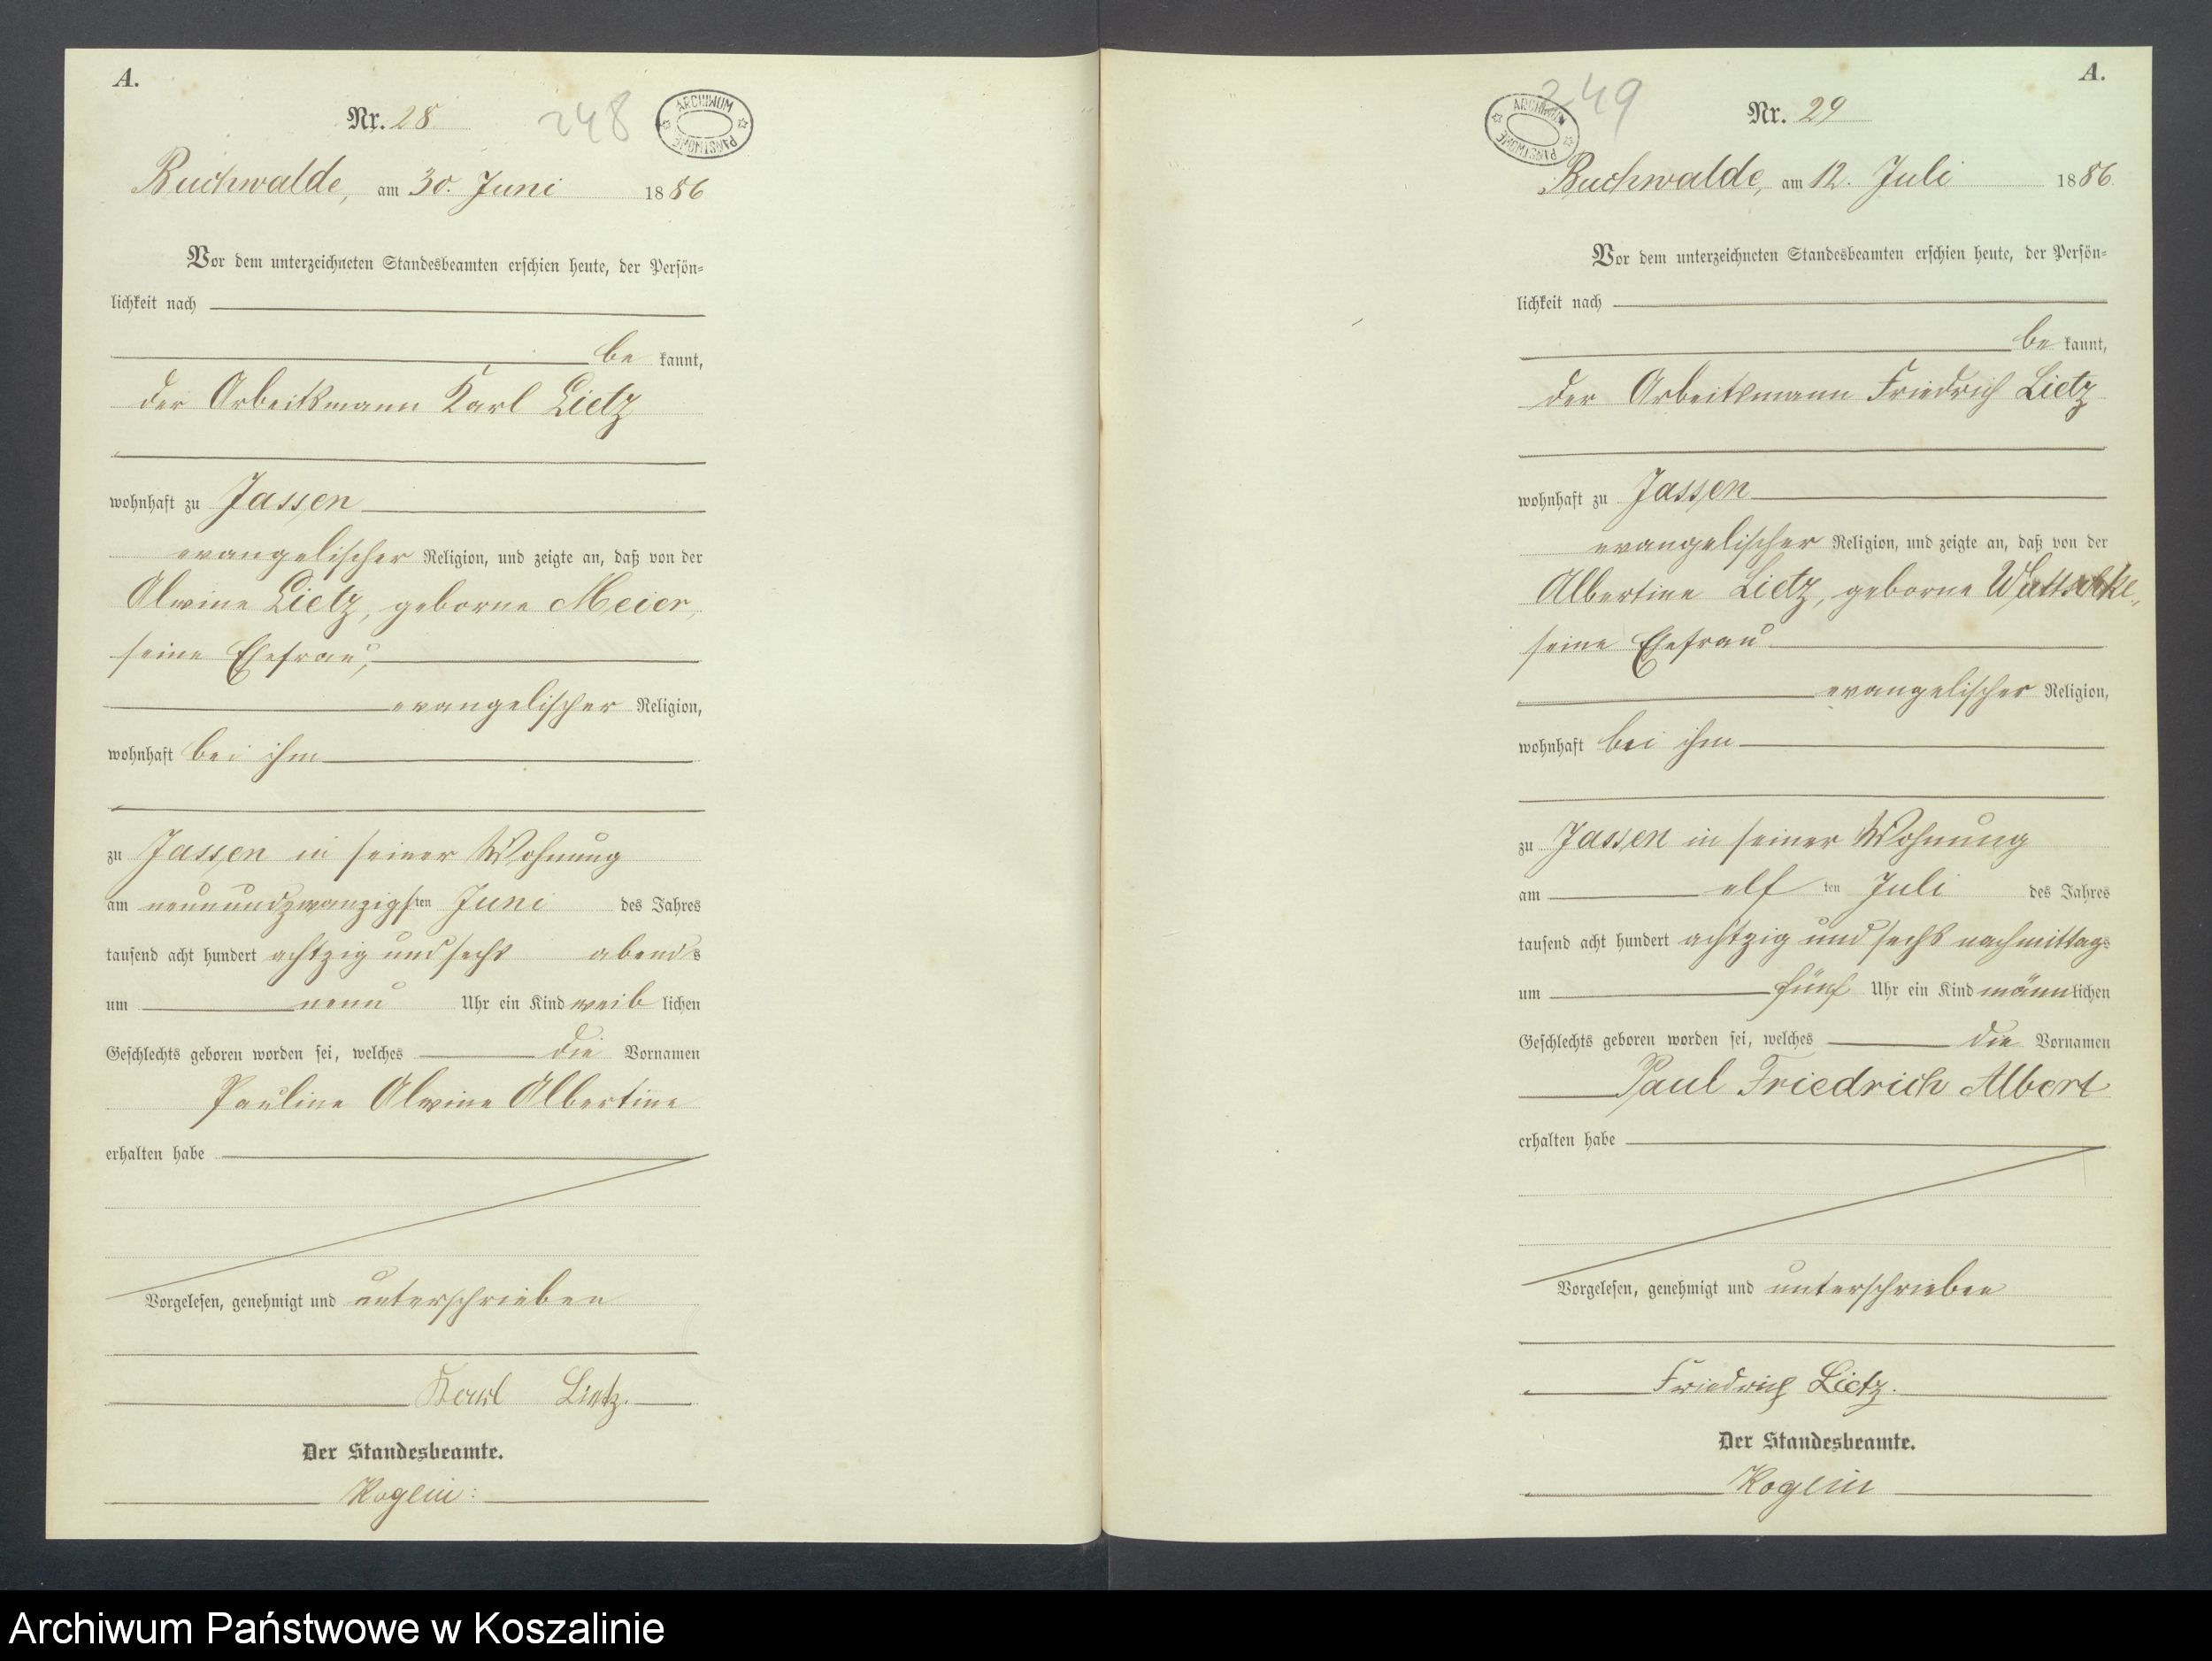 A.
Nr. 28
248
ARCHIWUM PAŃSTWOWE
Buchwalde, am 30. Juni 1886
Vor dem unterzeichneten Standesbeamten erschien heute, der Persön-
lichkeit nach
be kannt,
der Arbeitsmann Karl Lietz
wohnhaft zu Jassen
evangelischer Religion, und zeigte an, daß von der
Alwine Lietz, geborne Meier,
seine Ehefrau,
evangelischer Religion,
wohnhaft bei ihm
zu Jassen in seiner Wohnung
am neunundzwanzigsten Juni des Jahres
tausend acht hundert achtzig und sechs abends
um neun Uhr ein Kind weib lichen
Geschlechts geboren worden sei, welches die Vornamen
Pauline Alwine Albertine
erhalten habe
Vorgelesen, genehmigt und unterschrieben
Karl Lietz.
Der Standesbeamte.
Koglin
A.
249
ARCHIWUM PAŃSTWOWE
Nr. 29
Buchwalde, am 12. Juli 1886.
Vor dem unterzeichneten Standesbeamten erschien heute, der Persön-
lichkeit nach
be kannt,
der Arbeitsmann Friedrich Lietz
wohnhaft zu Jassen
evangelischer Religion, und zeigte an, daß von der
Albertine Lietz, geborne
seine Ehefrau
evangelischer Religion,
wohnhaft bei ihm
zu Jassen in seiner Wohnung
am elf ten Juli des Jahres
tausend acht hundert achtzig und sechs nachmittags
um fünf Uhr ein Kind männlichen
Geschlechts geboren worden sei, welches die Vornamen
Paul Friedrich Albert
erhalten habe
Vorgelesen, genehmigt und unterschrieben
Friedrich Lietz.
Der Standesbeamte.
Koglin
Archiwum Państwowe w Koszalinie